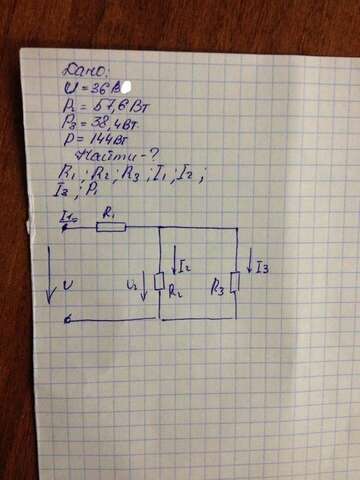 Дано:
U = 36 В
P₂ = 57,6 Вт
P₃ = 38,4 Вт
P = 144 Вт
Найти - ?
R₁ ; R₂ ; R₃ ; I₁ ; I₂ ;
I₃ ; P₁
I₁ R₁
U U₂ I₂ R₂ R₃ I₃